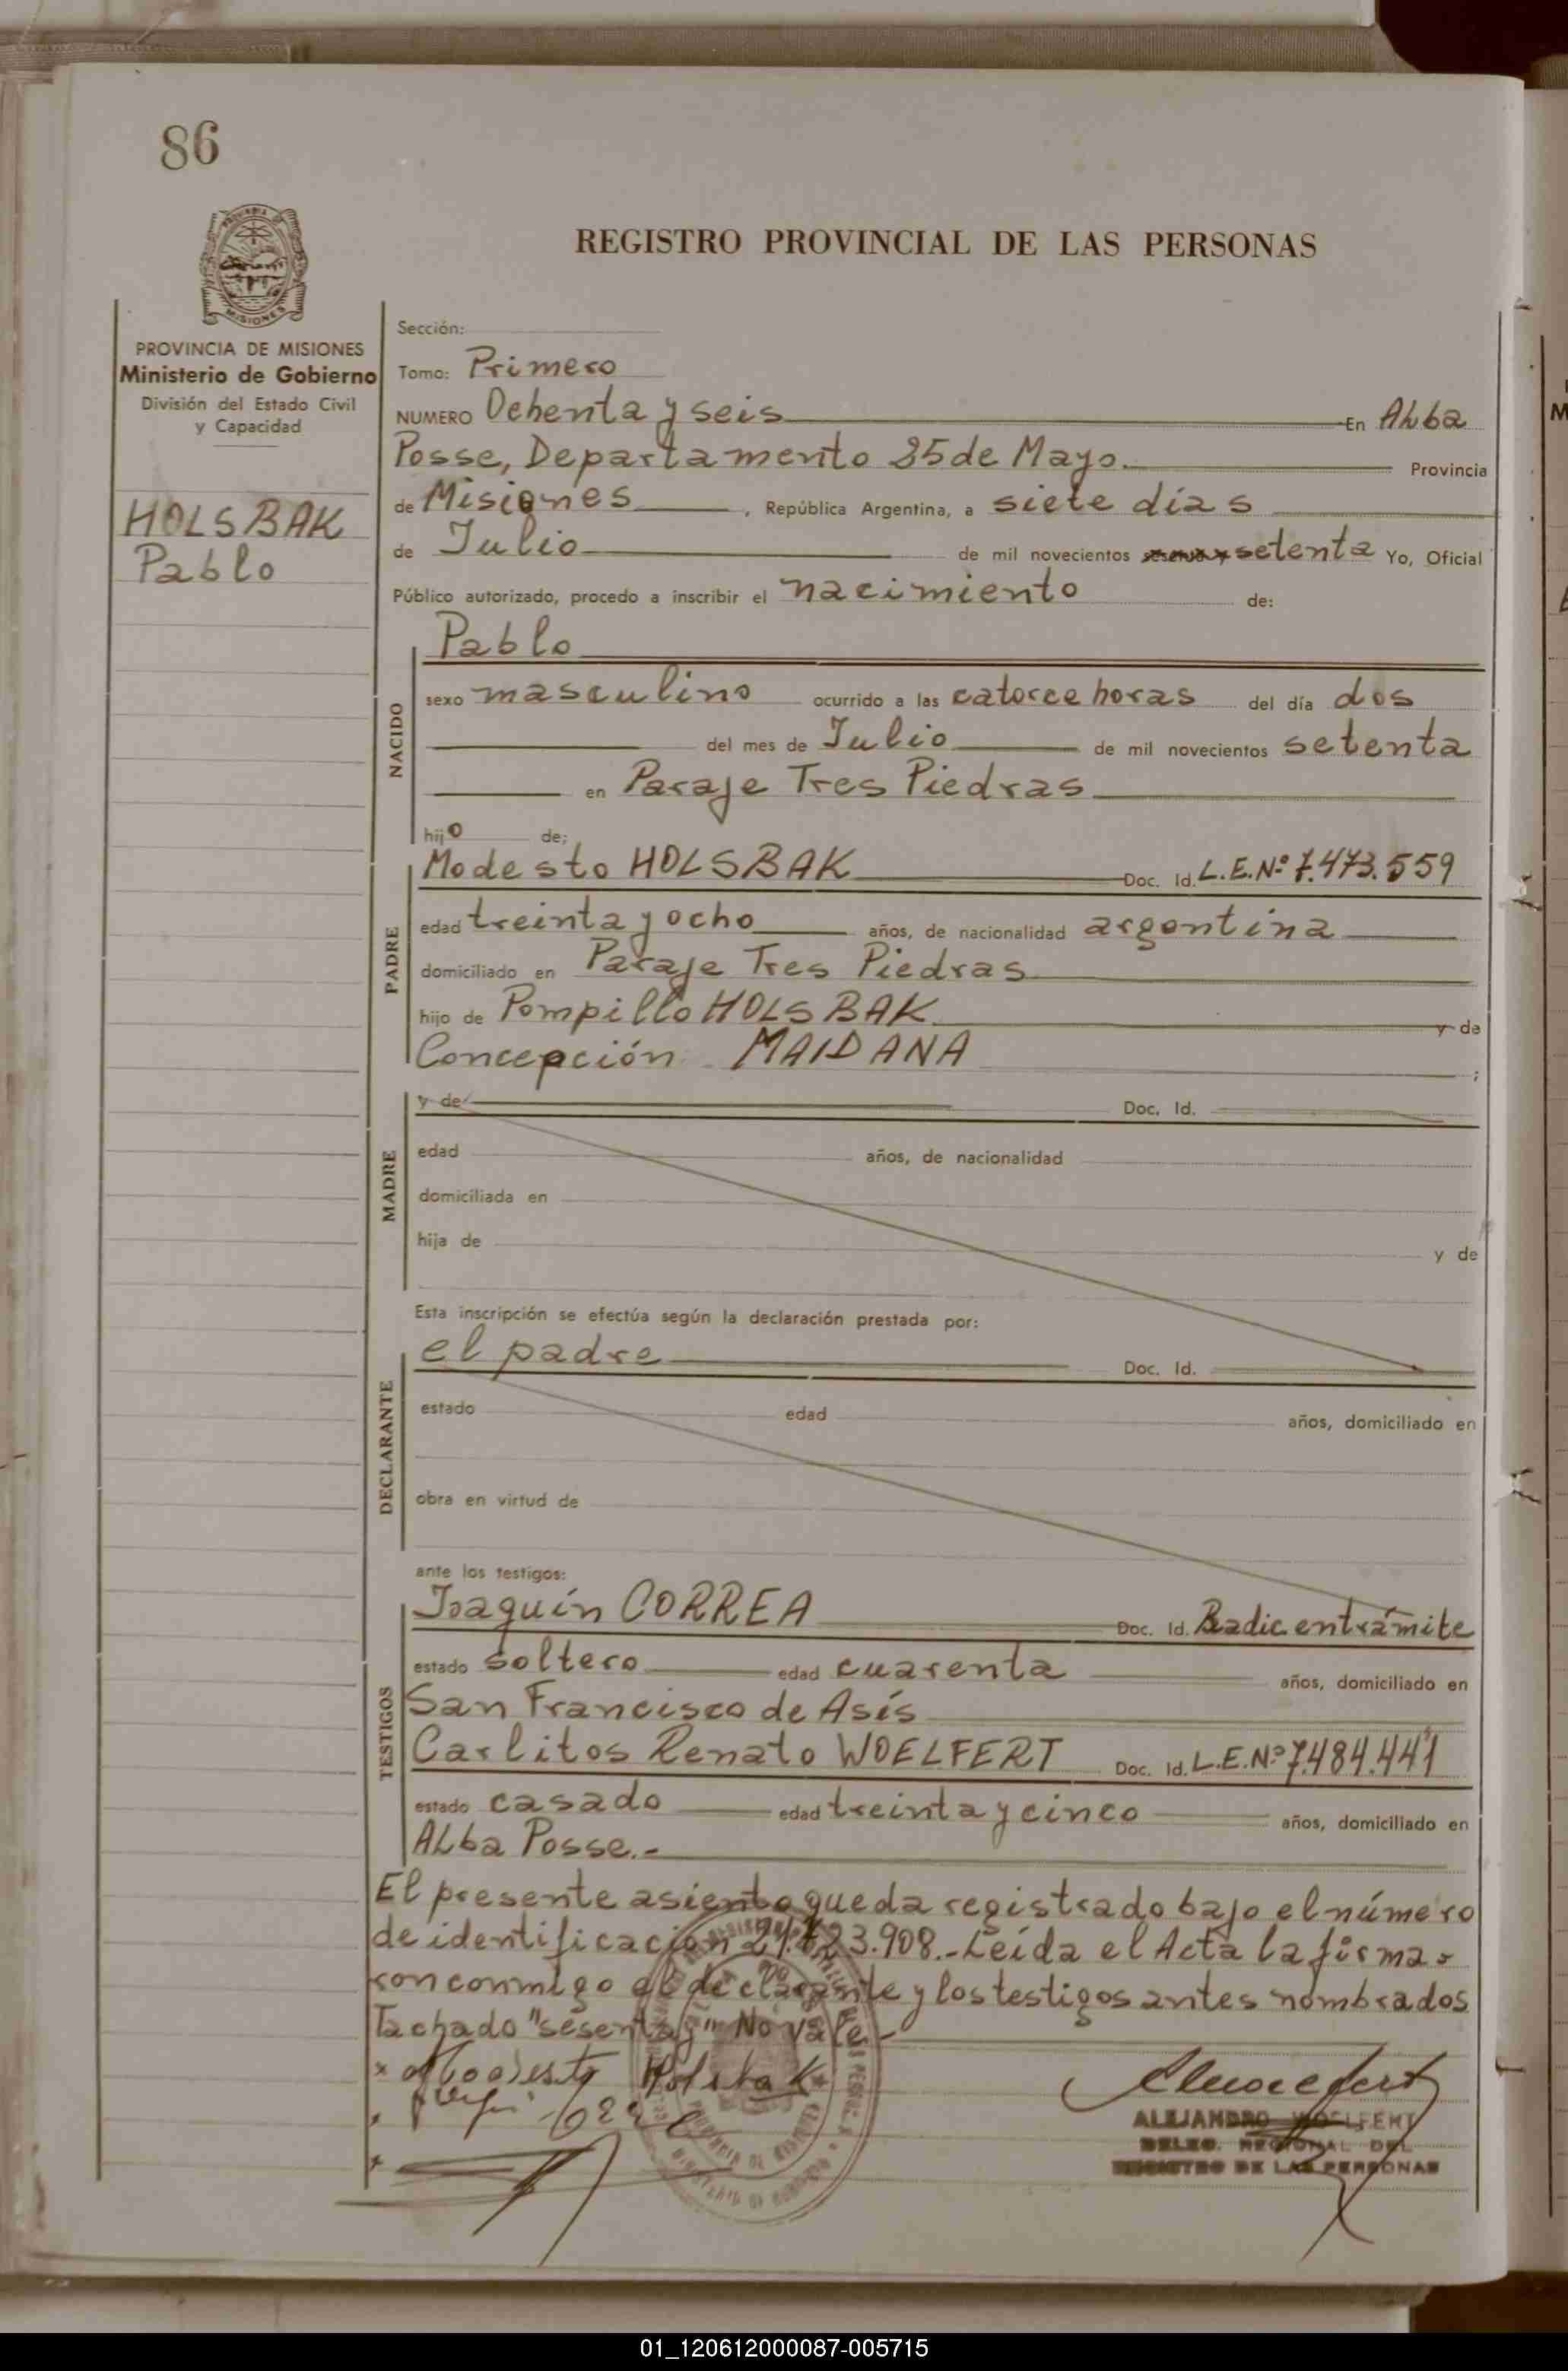 86
PROVINCIA DE MISIONES
Ministerio de Gobierno
División del Estado Civil
y Capacidad
HOLSBAK
Pablo
REGISTRO PROVINCIAL DE LAS PERSONAS
Sección:
Tomo: Primero
NUMERO Ochenta y seis En Alba
Posse, Departamento 25 de Mayo. Provincia
de Misiones, República Argentina, a siete días
de Julio de mil novecientos sesenta y setenta Yo, Oficial
Público autorizado, procedo a inscribir el nacimiento de:
NACIDO
Pablo
sexo masculino ocurrido a las catorce horas del día dos
del mes de Julio de mil novecientos setenta
en Paraje Tres Piedras
hijo de;
PADRE
Modesto HOLSBAK Doc. Id. L.E.Nº 7.473.559
edad treinta y ocho años, de nacionalidad argentina
domiciliado en Paraje Tres Piedras
hijo de Pompillo HOLSBAK y de
Concepción MAIDANA ;
MADRE
y de Doc. Id.
edad años, de nacionalidad
domiciliada en
hija de y de
Esta inscripción se efectúa según la declaración prestada por:
DECLARANTE
el padre Doc. Id.
estado edad años, domiciliado en
obra en virtud de
ante los testigos:
TESTIGOS
Joaquín CORREA Doc. Id. Radic. en trámite
estado soltero edad cuarenta años, domiciliado en
San Francisco de Asís
Carlitos Renato WOELFERT Doc. Id. L.E.Nº 7.484.441
estado casado edad treinta y cinco años, domiciliado en
Alba Posse.-
El presente asiento queda registrado bajo el número
de identificación 908.- Leída el Acta la firma-
ron conmigo el declarante y los testigos antes nombrados
Tachado "sesenta y" No vale.-
x Modesto Holsbak
ALEJANDRO WOELFERT
DELEG. REGIONAL DEL
REGISTRO DE LAS PERSONAS
01_120612000087-005715